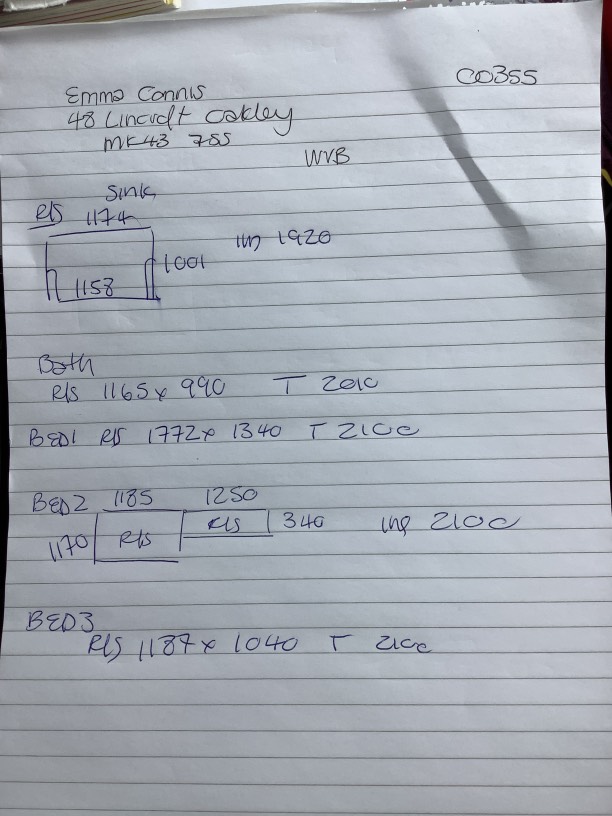 CO355
Emma Connis
48 Lincroft Oakley
MK43 7SS
WVB
Sink
R/S 1174
1001 up 1920
1158
Bath
R/S 1165 x 990 T 2010
BED1 R/S 1772 x 1340 T 2100
BED2 1185 1250
R/S 340 up 2100
1170 R/S
BED3
R/S 1187 x 1040 T 2100